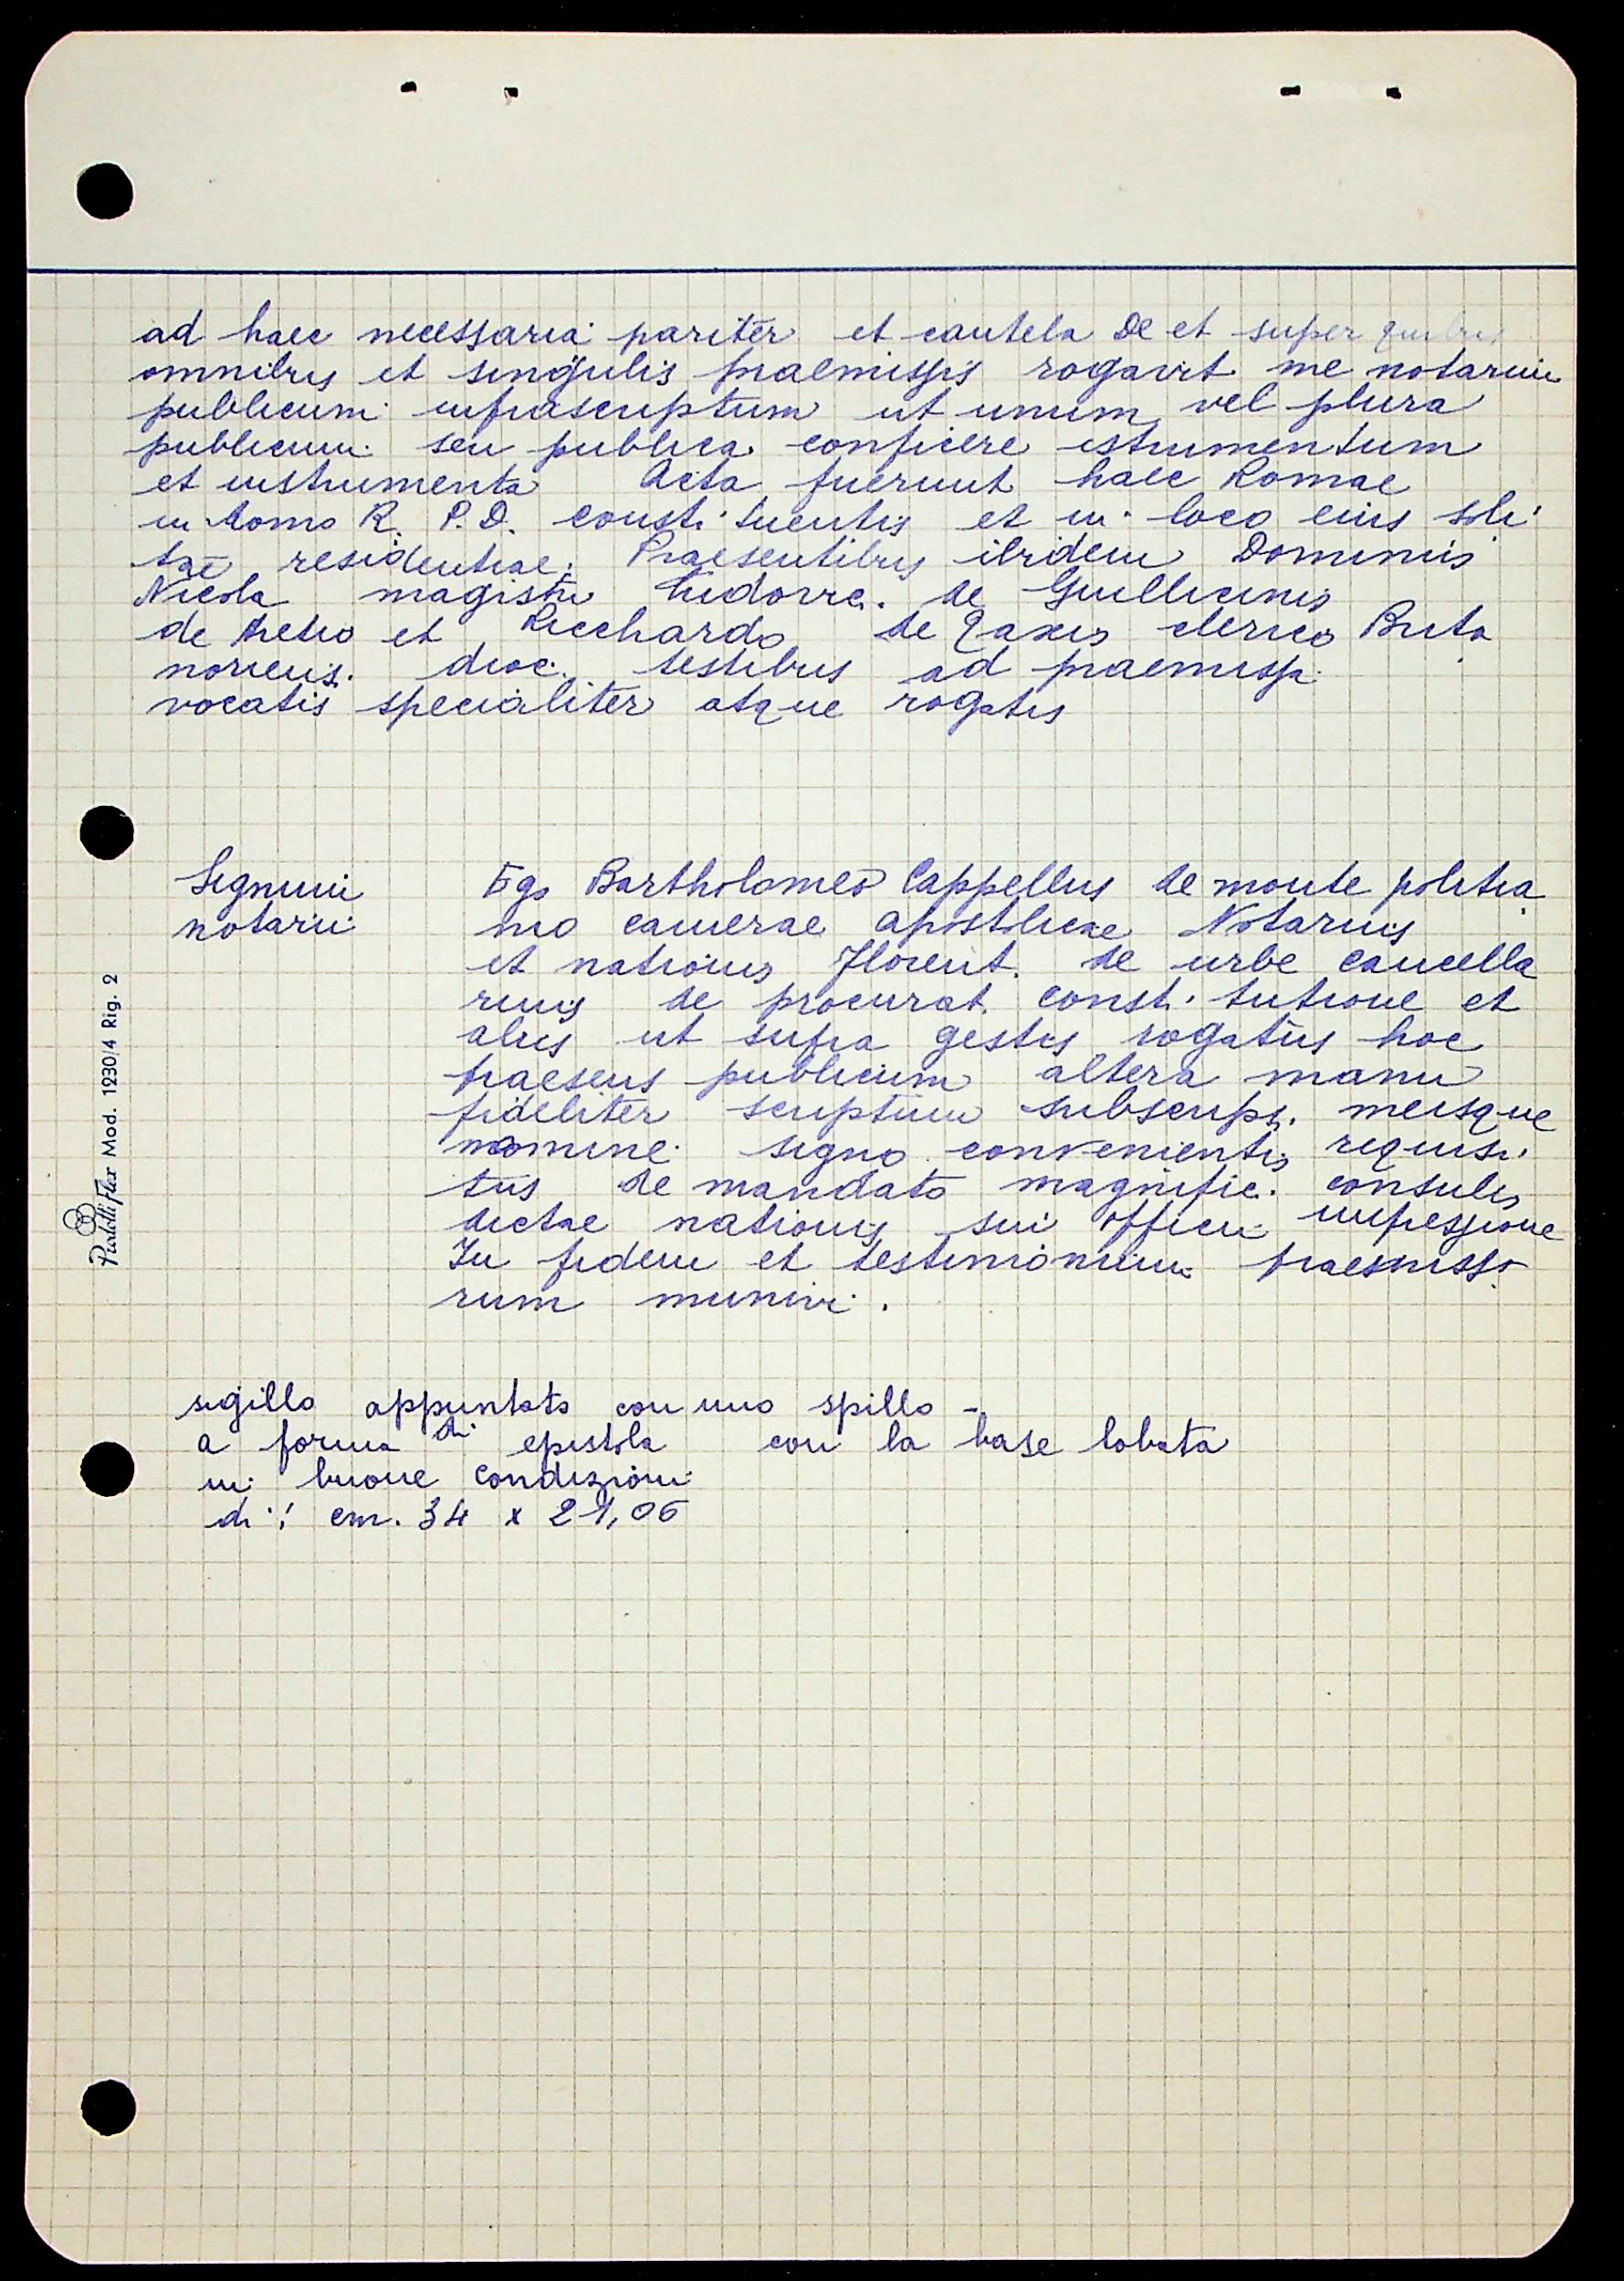 ad haec necessaria pariter et cautela De et super quibus
omnibus et singulis praemissis rogavit me notarium
publicum infrascriptum ut unum vel plura
publicum seu publica conficere istrumentum
et instrumenta Acta fuerunt haec Romae
in domo R. P. D. constituentis et in loco eius soli
tae residentiae. Praesentibus ibidem Dominis
Nicola magistri de Guellicinis
de et Ricchardo de clerico Bito
noriensis. dioc. testibus ad praemissa
vocatis specialiter atque rogatis
Signum Ego Bartholomeo Cappellus de monte politia
notarii no camerae apostolicae Notarius
et nationis Florent. de urbe cancella
rius de procurat. constitutione et
aliis ut supra gestis rogatus hoc
praesens publicum altera manu
fideliter scriptum subscripsi meisque
nomine signo convenientis requisi
tus de mandato magnific. consulis
dictae nationis sui officii impressione
In fidem et testimonium praemisso
rum munivi.
sigillo appuntato con uno spillo -
a forma di epistola con la base lobata
in buone condizioni
di: cm. 34 x 21,06
PigtolliFlex Mod. 11230/4 Rig. 2